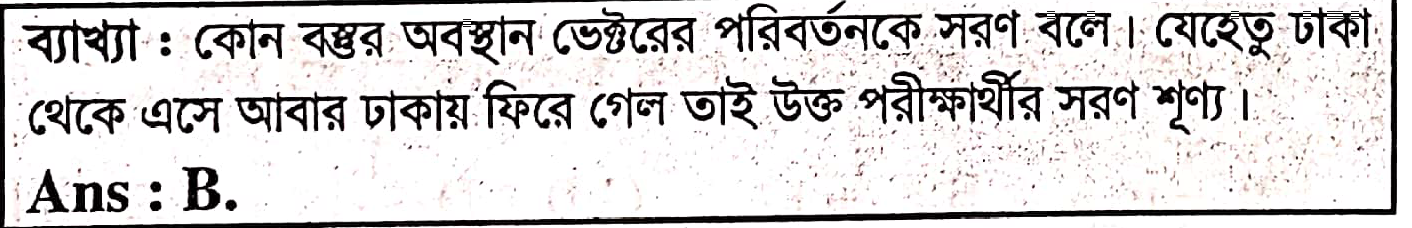 ব্যাখ্যা : কোন বস্তুর অবস্থান ভেক্টরের পরিবর্তনকে সরণ বলে। যেহেতু ঢাকা
থেকে এসে আবার ঢাকায় ফিরে গেল তাই উক্ত পরীক্ষার্থীর সরণ শূণ্য।
Ans : B.